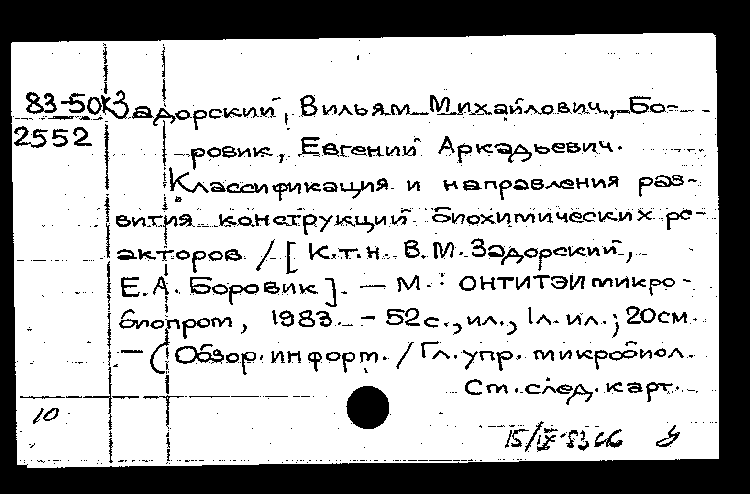 83-50К
2552
Задорский, Вильям Михайлович, Бо-
ровик, Евгений Аркадьевич.
Классификация и направления раз-
вития конструкций биохимических ре-
акторов / [К.т.н. В.М. Задорский,
Е.А. Боровик]. — М. : ОНТИТЭИмикро-
биопром, 1983. - 52с., ил., 1л. ил.; 20см.
— (Обзор. информ. / Гл. упр. микробиол.
См. след. карт.
10
15/IX-83